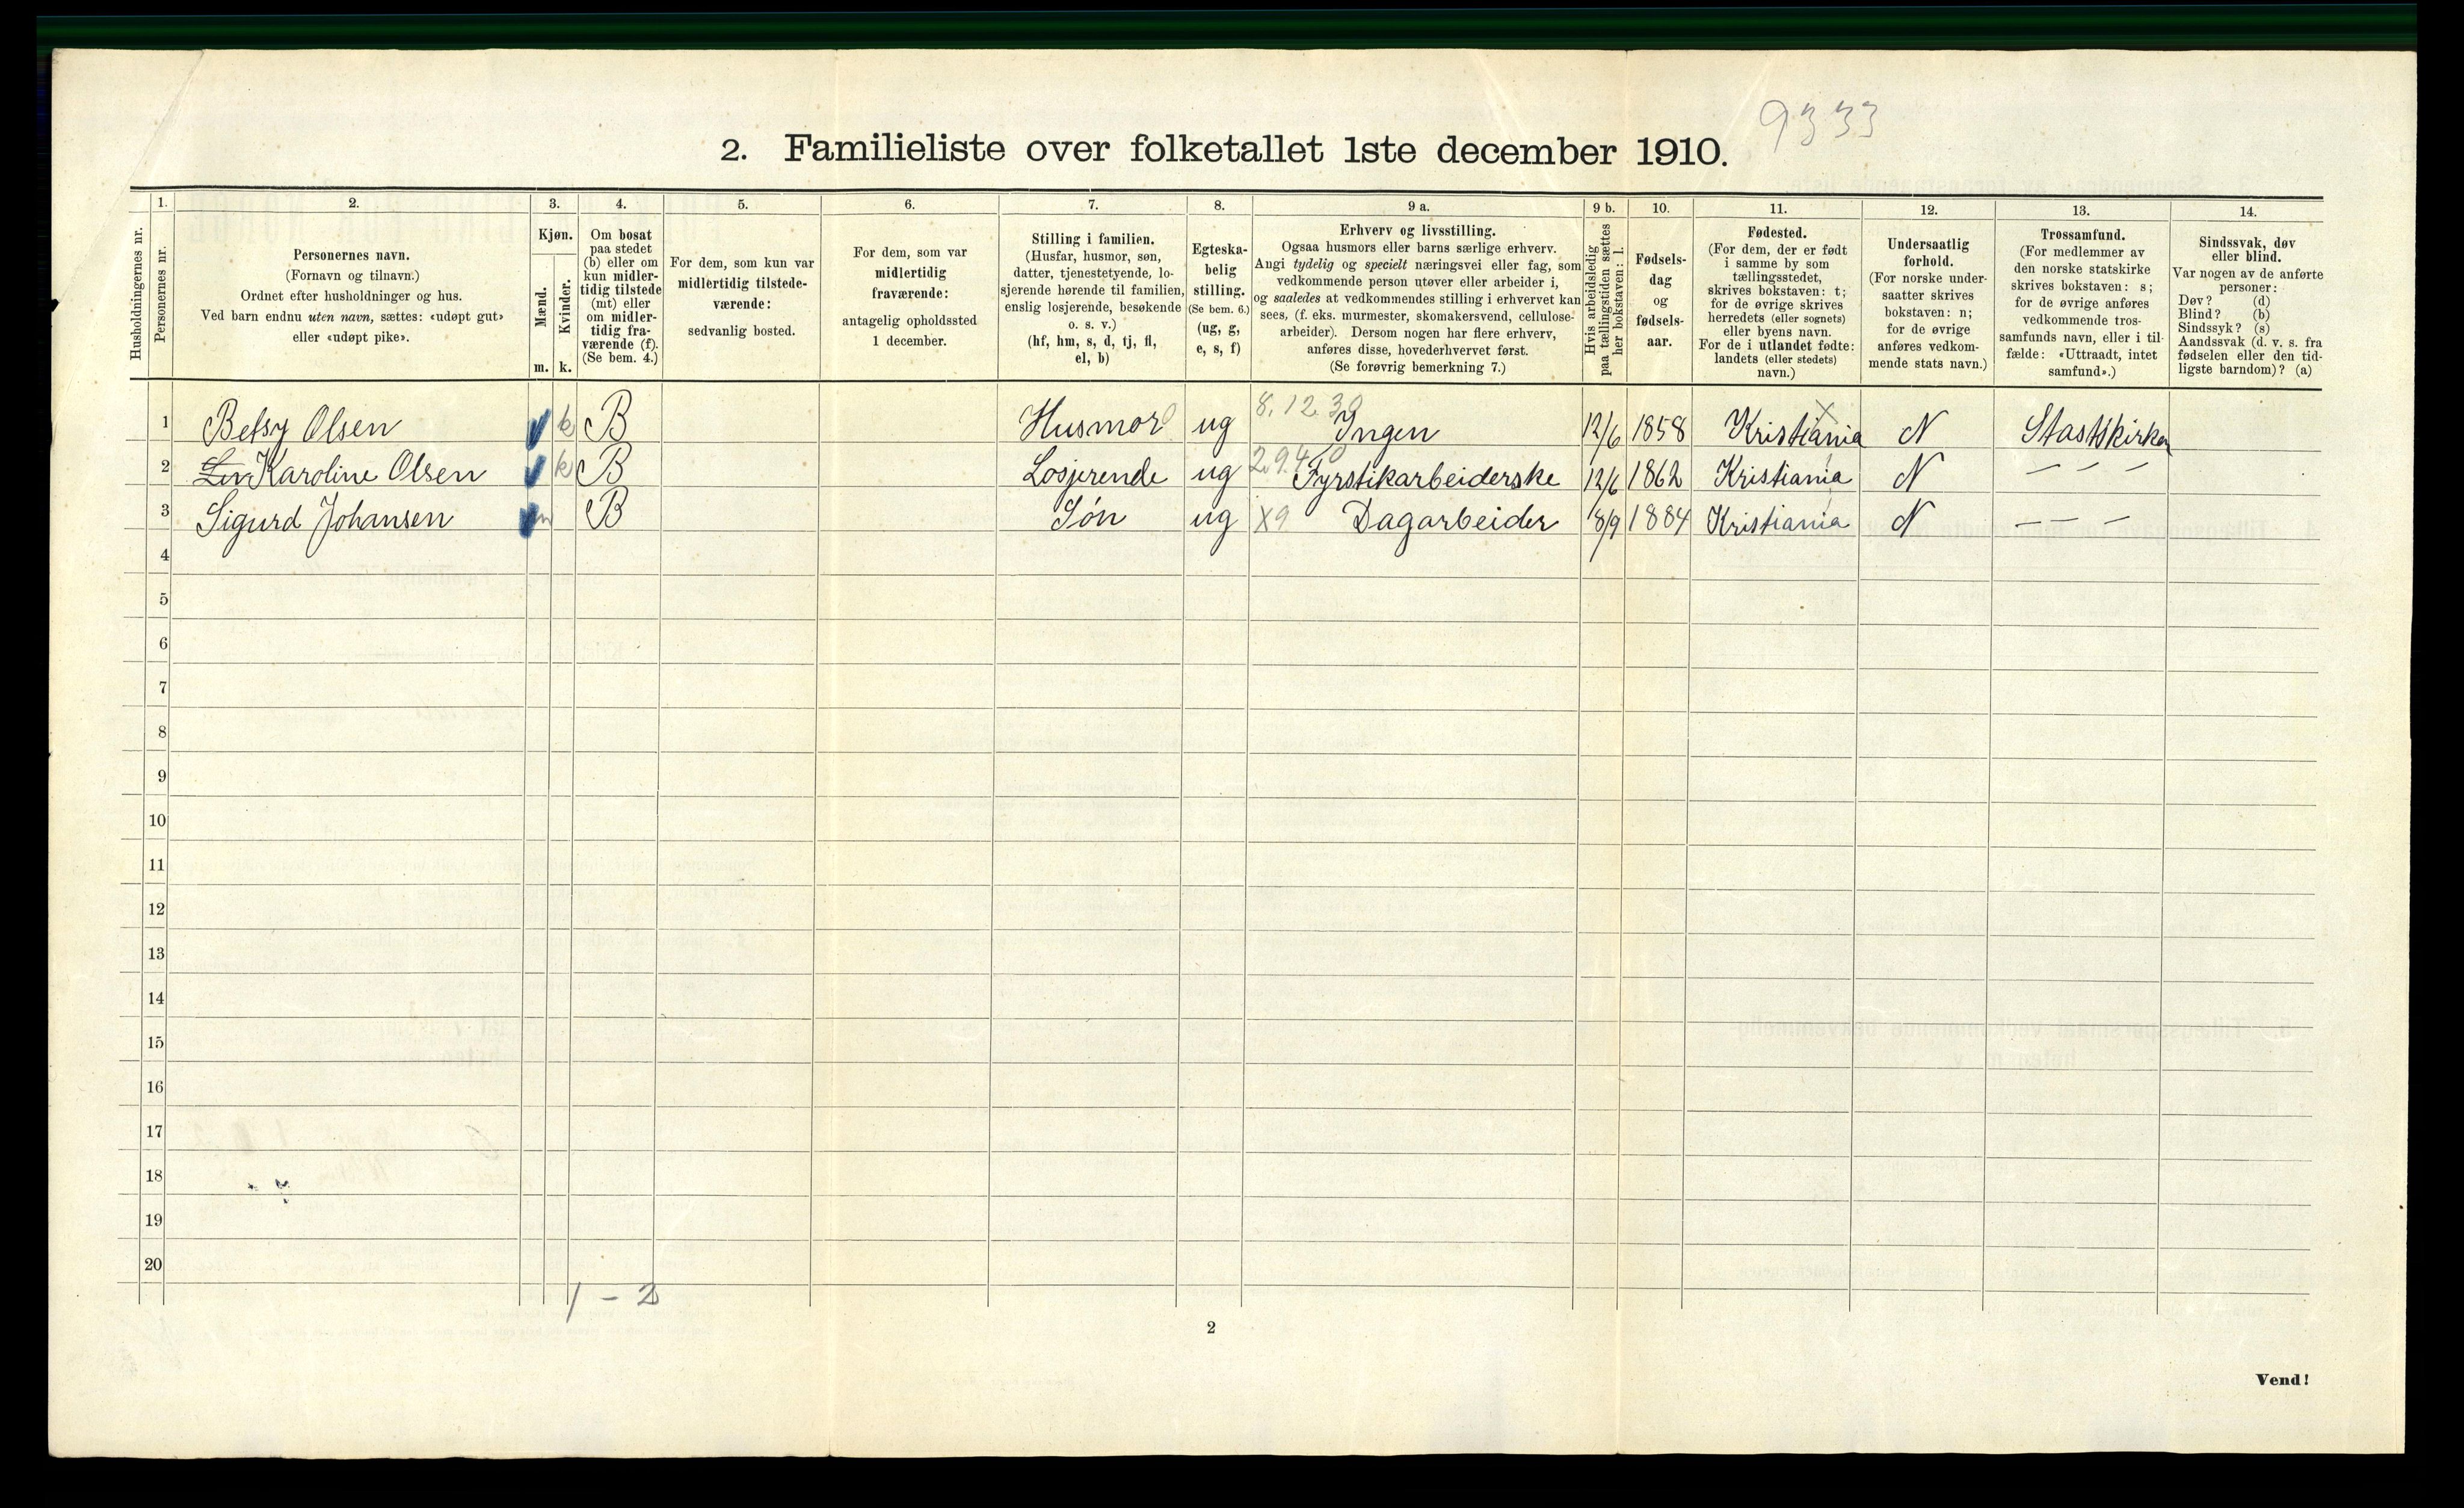 9333
2. Familieliste over folketallet 1ste december 1910.
Husholdningernes nr.
1.
Personernes nr.
2.
Personernes navn.
(Fornavn og tilnavn.)
Ordnet efter husholdninger og hus.
Ved barn endnu uten navn, sættes: «udøpt gut»
eller «udøpt pike».
3.
Kjøn.
Mænd.
Kvinder.
m. k.
4.
Om bosat
paa stedet
(b) eller om
kun midler-
tidig tilstede
(mt) eller
om midler-
tidig fra-
værende (f).
(Se bem. 4.)
5.
For dem, som kun var
midlertidig tilstede-
værende:
sedvanlig bosted.
6.
For dem, som var
midlertidig
fraværende:
antagelig opholdssted
1 december.
7.
Stilling i familien.
(Husfar, husmor, søn,
datter, tjenestetyende, lo-
sjerende hørende til familien,
enslig losjerende, besøkende
o. s. v.)
(hf, hm, s, d, tj, fl,
el, b)
8.
Egteska-
belig
stilling.
(Se bem. 6.)
(ug, g,
e, s, f)
9 a.
Erhverv og livsstilling.
Ogsaa husmors eller barns særlige erhverv.
Angi tydelig og specielt næringsvei eller fag, som
vedkommende person utøver eller arbeider i,
og saaledes at vedkommendes stilling i erhvervet kan
sees, (f. eks. murmester, skomakersvend, cellulose-
arbeider). Dersom nogen har flere erhverv,
anføres disse, hovederhvervet først.
(Se forøvrig bemerkning 7.)
9 b.
Hvis arbeidsledig
paa tællingstiden sættes
her bokstaven: l.
10.
Fødsels-
dag
og
fødsels-
aar.
11.
Fødested.
(For dem, der er født
i samme by som
tællingsstedet,
skrives bokstaven: t;
for de øvrige skrives
herredets (eller sognets)
eller byens navn.
For de i utlandet fødte:
landets (eller stedets)
navn.)
12.
Undersaatlig
forhold.
(For norske under-
saatter skrives
bokstaven: n;
for de øvrige
anføres vedkom-
mende stats navn.)
13.
Trossamfund.
(For medlemmer av
den norske statskirke
skrives bokstaven: s;
for de øvrige anføres
vedkommende tros-
samfunds navn, eller i til-
fælde: «Uttraadt, intet
samfund».)
14.
Sindssvak, døv
eller blind.
Var nogen av de anførte
personer:
Døv? (d)
Blind? (b)
Sindssyk? (s)
Aandssvak (d. v. s. fra
fødselen eller den tid-
ligste barndom)? (a)
1 Betsy Olsen k B Husmor ug 8.12.30 Ingen 12/6 1858 Kristiania N Statskirken
2 Karoline Olsen k B Losjerende ug 29.40 Fyrstikarbeiderske 12/6 1862 Kristiania N — — —
3 Sigurd Johansen m B Søn ug X9 Dagarbeider 18/9 1884 Kristiania N — — —
4
5
6
7
8
9
10
11
12
13
14
15
16
17
18
19
20
1 - 2
2
Vend!